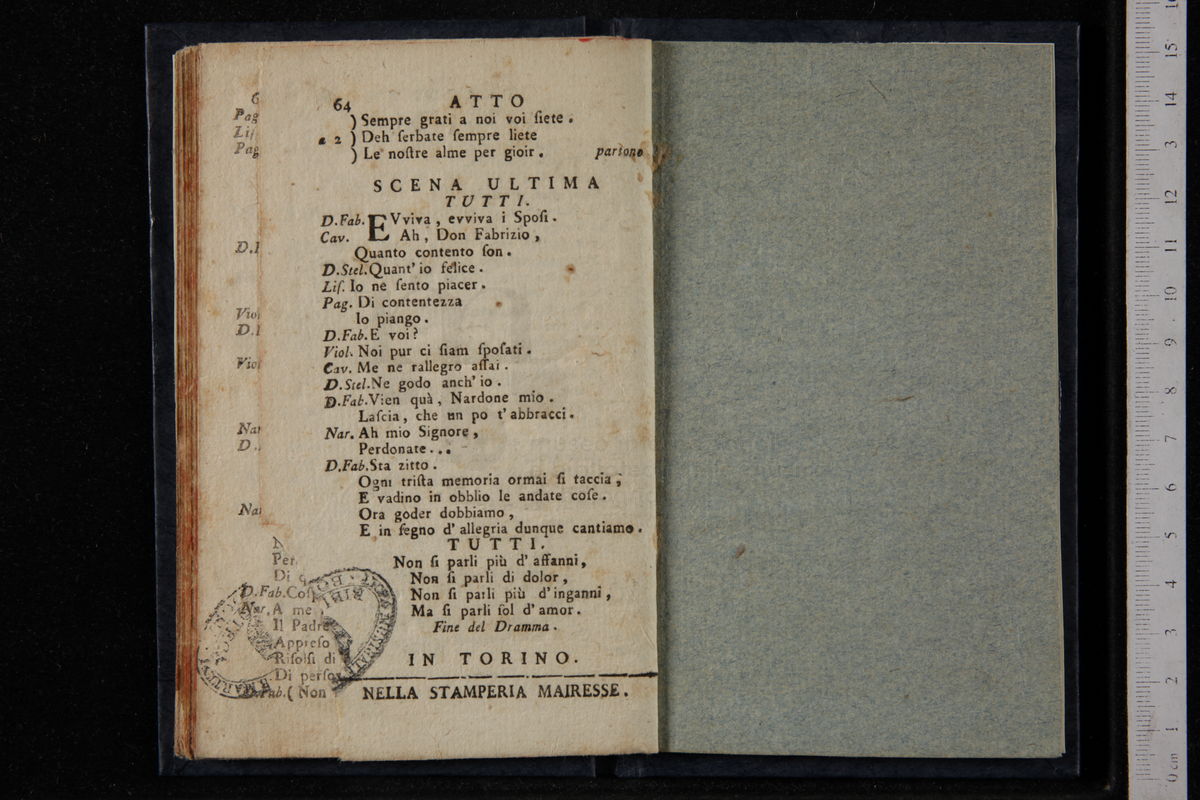 64 ATTO
) Sempre grati a noi voi ſiete .
a 2 ) Deh ſerbate ſempre liete
) Le noſtre alme per gioir . partono
SCENA ULTIMA
TUTTI.
D.Fab. EVviva , evviva i Spoſi .
Cav. Ah , Don Fabrizio ,
Quanto contento ſon .
D.Stel. Quant' io felice .
Liſ. Io ne ſento piacer .
Pag. Di contentezza
Io piango .
D.Fab. E voi ?
Viol. Noi pur ci ſiam ſpoſati .
Cav. Me ne rallegro aſſai .
D.Stel. Ne godo anch' io .
D.Fab. Vien quà , Nardone mio .
Laſcia , che un po t' abbracci .
Nar. Ah mio Signore ,
Perdonate . . .
D.Fab. Sta zitto .
Ogni triſta memoria ormai ſi taccia ;
E vadino in obblio le andate coſe .
Ora goder dobbiamo ,
E in ſegno d' allegria dunque cantiamo .
TUTTI.
Non ſi parli più d' affanni ,
Non ſi parli di dolor ,
Non ſi parli più d' inganni ,
Ma ſi parli ſol d' amor .
Fine del Dramma .
IN TORINO.
NELLA STAMPERIA MAIRESSE .
Pag
Liſ
Pag
D.
Viol
D.
Viol
Nar
D.
Nar
Per
Di q
D.Fab. Coſ
Nar. A me
Il Padre
Appreſo
Riſolſi di
Di perſo
D.Fab. ( Non
0 cm 1 2 3 4 5 6 7 8 9 10 11 12 13 14 15